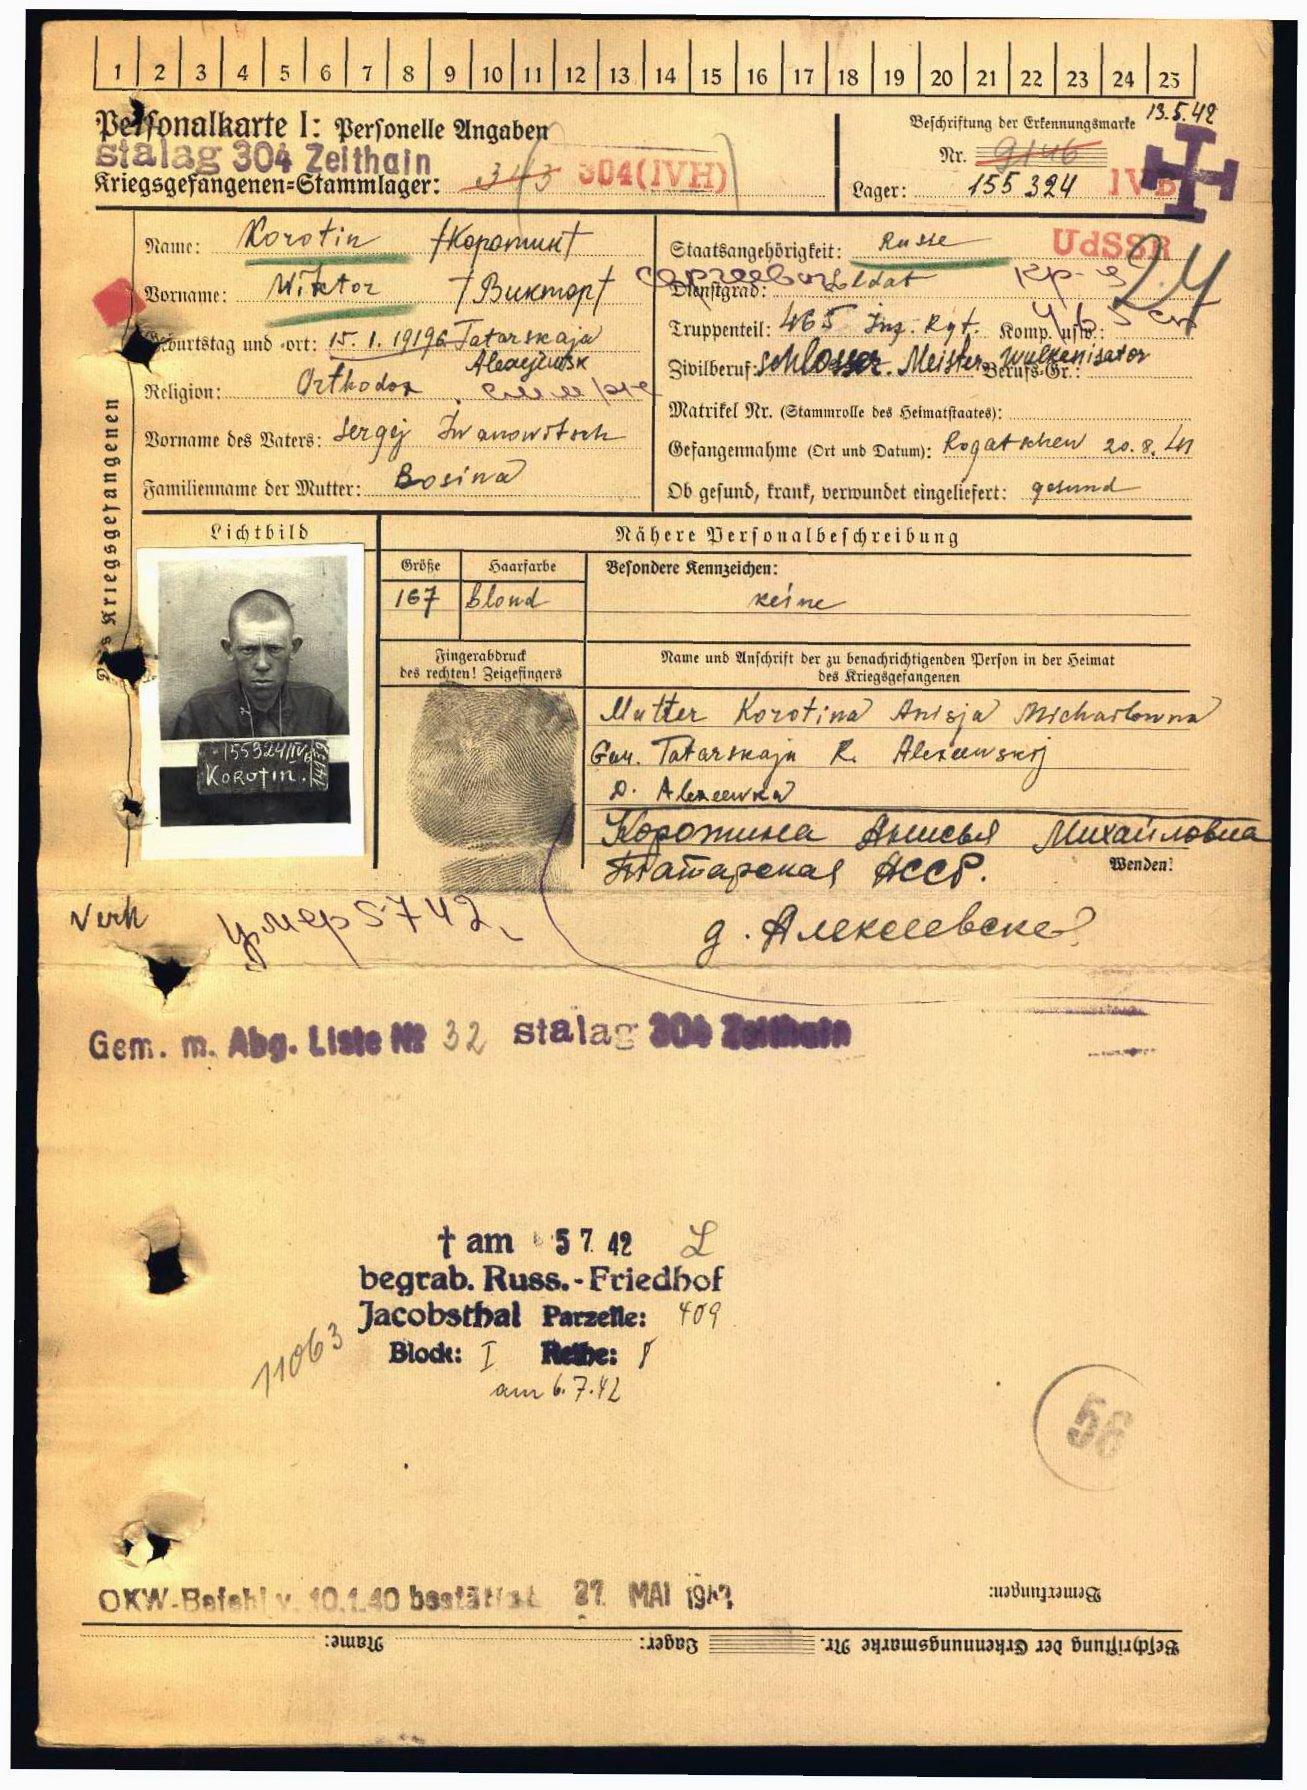 1 2 3 4 5 6 7 8 9 10 11 12 13 14 15 16 17 18 19 20 21 22 23 24 25
13.5.42
Personalkarte I: Personelle Angaben
Beschriftung der Erkennungsmarke
stalag 304 Zeithain
Nr. 9146
Kriegsgefangenen-Stammlager: 343 304(IVH)
Lager: 155324 IVB
Name: Korotin /Коротин/
Staatsangehörigkeit: Russe UdSSR
24
Vorname: Wiktor /Виктор/
Dienstgrad: Soldat
Geburtstag und -ort: 15.1.1919 Tatarskaja
Truppenteil: 465 Inf. Rgt. Komp. usw.:
Zivilberuf: Schlosser. Meister Wulkenisator Berufs-Gr.:
Religion: Orthodox
Matrikel Nr. (Stammrolle des Heimatstaates):
Vorname des Vaters: Sergej Iwanowitsch
Gefangennahme (Ort und Datum): Rogatschew 20.8.41
Familienname der Mutter: Bosina
Ob gesund, krank, verwundet eingeliefert: gesund
Des Kriegsgefangenen
Lichtbild
Nähere Personalbeschreibung
Größe Haarfarbe Besondere Kennzeichen:
167 blond keine
Fingerabdruck
des rechten! Zeigefingers
Name und Anschrift der zu benachrichtigenden Person in der Heimat
des Kriegsgefangenen
Mutter Korotina Anisja Michailowna
Gou. Tatarskaja R. Alexewskij
D. Alexeewka
155324/IVB
KOROTIN.
Коротина Анисья Михайловна
Татарская АССР.
Wenden!
д. Алексеевске
Verh
умер 5 7 42
Gem. m. Abg. Liste № 32 stalag 304 Zeithain
† am 5 7. 42
begrab. Russ.-Friedhof
Jacobsthal Parzelle: 409
Block: I Reihe:
11063
am 6.7.42
56
OKW-Befehl v. 10.1.40 bestätigt 27. MAI 1942
Bemerkungen:
Beschriftung der Erkennungsmarke Nr. Lager: Name: